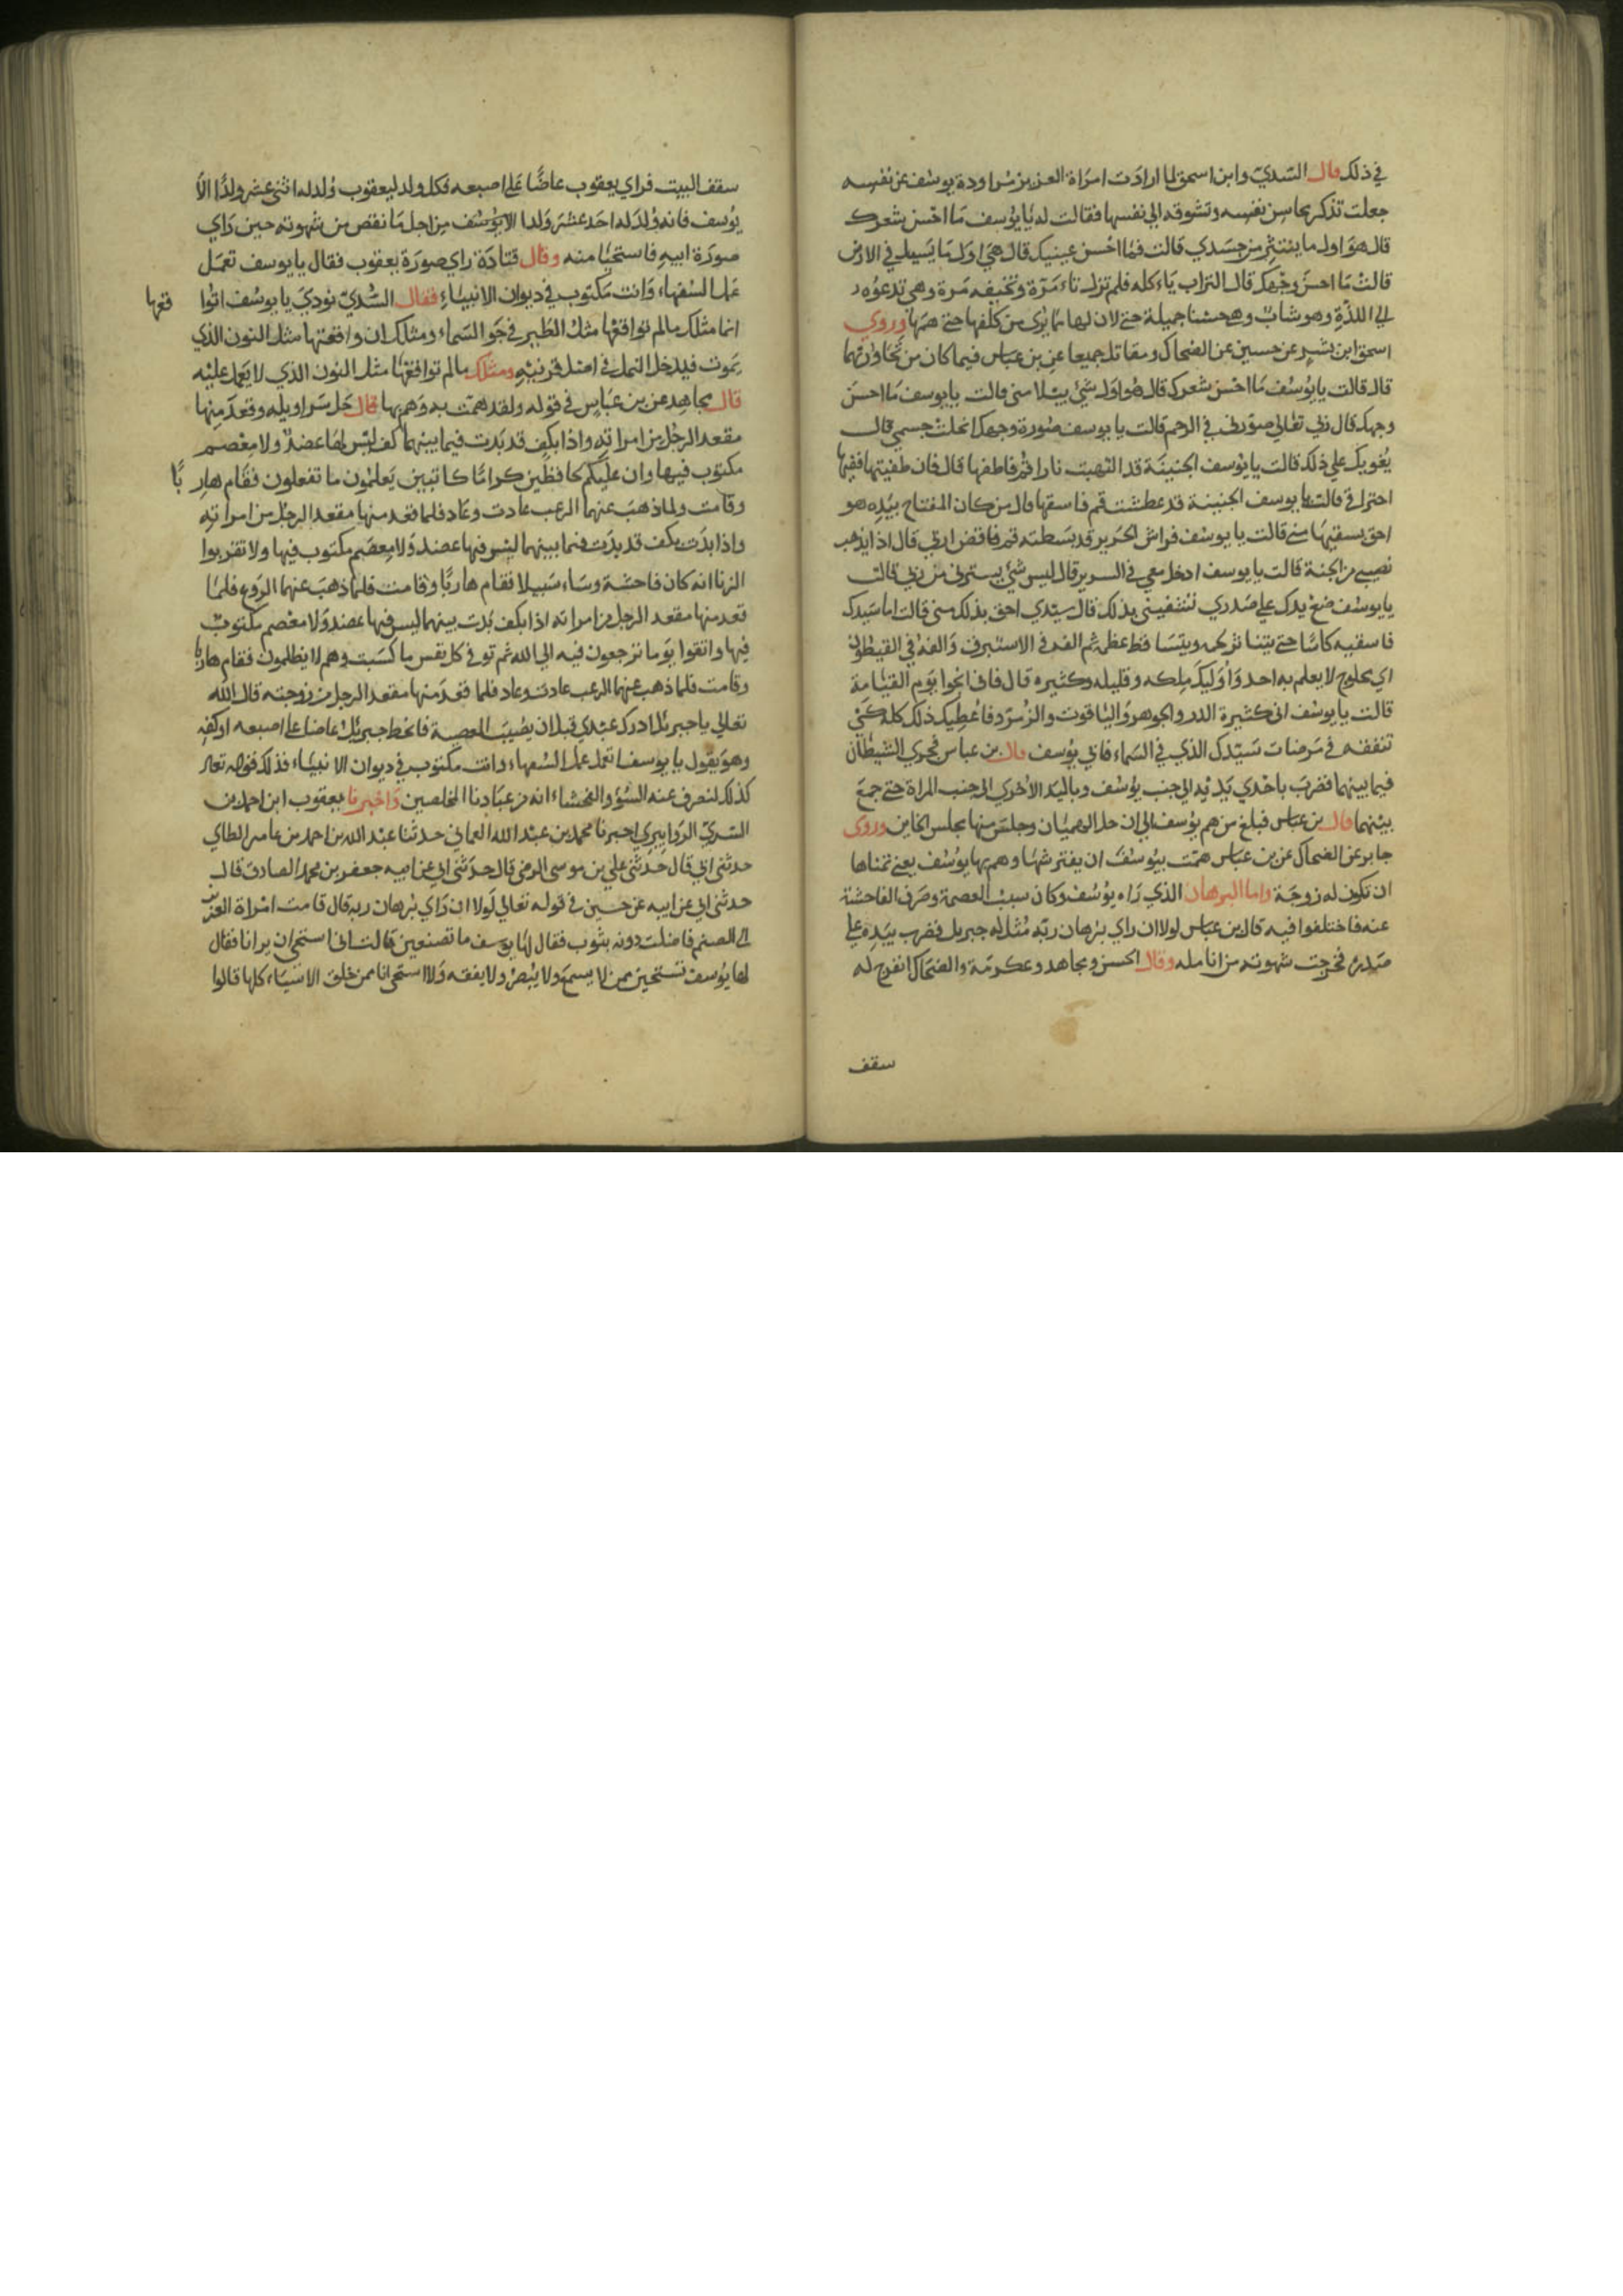 في ذلك قال السّديّ وابن اسحق لما ارادت امراة العزيز مراودة يوسف عن نفسه
جعلت تذكر محاسن نفسه وتشوقه الي نفسها فقالت له يا يوسف ما احسن شعرك
قال هو اول ما ينتثر من جسدي قالت فما احسن عينيك قال هي اول ما يسيل في الارض
قالت ما احسن وجهك قال التراب ياءكله فلم تزل تاءمرة وتخيفه مرة وهي تدعوه
الي اللذة وهو شاب وهي حسنا جميلة حتي لان لها مما يري من كلفها حتي هم بها وروي
اسحق ابن بشر عن حسين عن الضحاك ومقاتل جميعا عن بن عباس فيما كان من تحاورتهما
قال قالت يا يوسف ما احسن شعرك قال هو اول شيئ يبلا مني قالت يا يوسف ما احسن
وجهك قال ربي تعالي صورني في الرحم قالت يا يوسف صورة وجهك انحلت جسمي قال
يغويك علي ذلك قالت يا يوسف الجنينة قد التهبت نارا قم فاطفها قال فان طفيتها ففيها
احتراقي قالت يا يوسف الجنينة قد عطشت قم فاسقها قال من كان المفتاح بيده هو
احق بسقيها مني قالت يا يوسف فراش الحرير قد بسطته قم فاقض اربي قال اذا يذهب
نصيبي من الجنة قالت يا يوسف ادخل معي في السرير قال ليس شيئ يسترني من ربي قالت
يا يوسف ضع يدك علي صدري تشفيني بذلك قال سيدي احق بذلك مني قالت اما سيدك
فاسقيه كاسا حتي يتنا لحمه ويتسا قط عظمه ثم الفه في الاستبرق والفه في القيطون
اي بحلوج لا يعلم به احد واوليك ملكه وقليله وكثيره قال فاني اخوا يوم القيامة
قالت يا يوسف اني كثيرة الدر والجوهر والياقوت والزمرد فاعطيك ذلك كله كي
تنفقه في مرضات سيدك الذي في السماء فابي يوسف قال بن عباس فجري الشيطان
فيما بينهما فضرب باحدي يديه الي جنب يوسف وباليد الاخري الي جنب المراة حتي جمع
بينهما قال بن عباس فبلغ من هم يوسف الي ان حل الهميان وجلس منها مجلس الخاين وروي
جابر عن الضحاك عن بن عباس همت بيوسف ان يفترشها وهم بها يوسف يعني تمناها
ان تكون له زوجة واما البرهان الذي راه يوسف وكان سبب العصمة وصرف الفاحشة
عنه فاختلفوا فيه قال بن عباس لولا ان راي برهان ربه مثل له جبريل فضرب بيده علي
صدره فخرجت شهوته من انامله وقال الحسن ومجاهد وعكرمة والضحاك انفرج له
سقف
سقف البيت فراي يعقوب عاضا علي اصبعه فكل ولد ليعقوب ولد له اثني عشر ولدا الا
يوسف فانه ولد له احد عشر ولدا الا يوسف من اجل ما نقص من شهوته حين راي
صورة ابيه فاستحيا منه وقال قتادة راي صورة يعقوب فقال يا يوسف تعمل
عمل السفهاء وانت مكتوب في ديوان الانبياء فقال السّديّ نودي يا يوسف اتوا قعها
انما مثلك مالم تواقعها مثل الطير في جو السماء ومثلك ان واقعتها مثل الثور الذي
يموت فيدخل النمل في اصل قرنيه ومثلك مالم تواقعها مثل الثور الذي لا يعمل عليه
قال مجاهد عن بن عباس في قوله ولقد همت به وهم بها قال حل سراويله وقعد منها
مقعد الرجل من امراته واذا بكف قد بدت فيما بينهما كف ليس لها عضد ولا معصم
مكتوب فيها وان عليكم لحافظين كراما كاتبين يعلمون ما تفعلون فقام هاربا
وقامت ولما ذهب عنهما الرعب عادت وعاد فلما قعد منها مقعد الرجل من امراته
واذا بدت بكف قد بدت فيما بينهما ليس فيها عضد ولا معصم مكتوب فيها ولا تقربوا
الزنا انه كان فاحشة وساء سبيلا فقام هاربا وقامت فلما ذهب عنهما الروع فلما
قعد منها مقعد الرجل من امراته اذا بكف بدت بينهما ليس فيها عضد ولا معصم مكتوب
فيها واتقوا يوما ترجعون فيه الي الله ثم توفي كل نفس ما كسبت وهم لا يظلمون فقام هاربا
وقامت فلما ذهب عنهما الرعب عادت وعاد فلما قعد منها مقعد الرجل من زوجته قال الله
تعالي يا جبريل ادرك عبدي قبل ان يصيب المعصية فانحط جبريل عاضا علي اصبعه او كفه
وهو يقول يا يوسف اتعمل عمل السفهاء وانت مكتوب في ديوان الانبياء فذلك قوله تعالي
كذلك لنصرف عنه السوء والفحشاء انه من عبادنا المخلصين واخبرنا يعقوب ابن احمد بن
السري اخبرنا محمد بن عبد الله العماني حدثنا عبد الله بن احمد بن عامر الطاي
حدثني ابي قال حدثني علي بن موسي الرضي قال حدثني ابي عن ابيه جعفر بن محمد الصادق قال
حدثني ابي عن ابيه عن حسين في قوله تعالي لولا ان راي برهان ربه قال قامت امراة العزيز
الي الصنم فاضلت دونه بثوب فقال لها يوسف ما تصنعين قالت اني استحي ان يرانا فقال
لها يوسف تستحين ممن لا يسمع ولا يبصر ولا يفقه ولا استحي انا ممن خلق الاشياء كلها قالوا